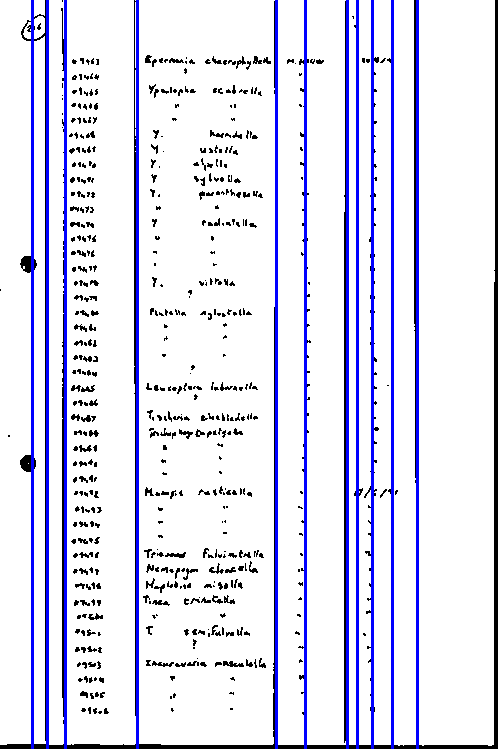 09463 Epermenia chaerophyllella M.
09464 ?
09465 Ypsolopha scabrella "
09466 " " "
09467 " " "
09468 Y. horridella "
09469 Y. ustella "
09470 Y. alpella "
09471 Y sylvella "
09472 Y. parenthesella "
09473 " " "
09474 Y radiatella "
09475 " " "
09476 " " "
09477 " " "
09478 Y. vittella "
09479 ? "
09480 Plutella xylostella "
09481 " " "
09482 " " "
09483 " " "
09484 ? "
09485 Leucoptera laburnella "
09486 ? "
09487 Tischeria ekebladella "
09488 "
09489 " " "
09490 " " "
09491 " " "
09492 Monopis rusticella "
09493 " " "
09494 " " "
09495 " " "
09496 Triaxomera fulvimitrella "
09497 Nemapogon cloacella "
09498 misella "
09499 Tinea trinotella "
09500 " " "
09501 T. semifulvella "
09502 ? "
09503 Incurvaria masculella "
09504 " " "
09505 " " "
09506 " " "